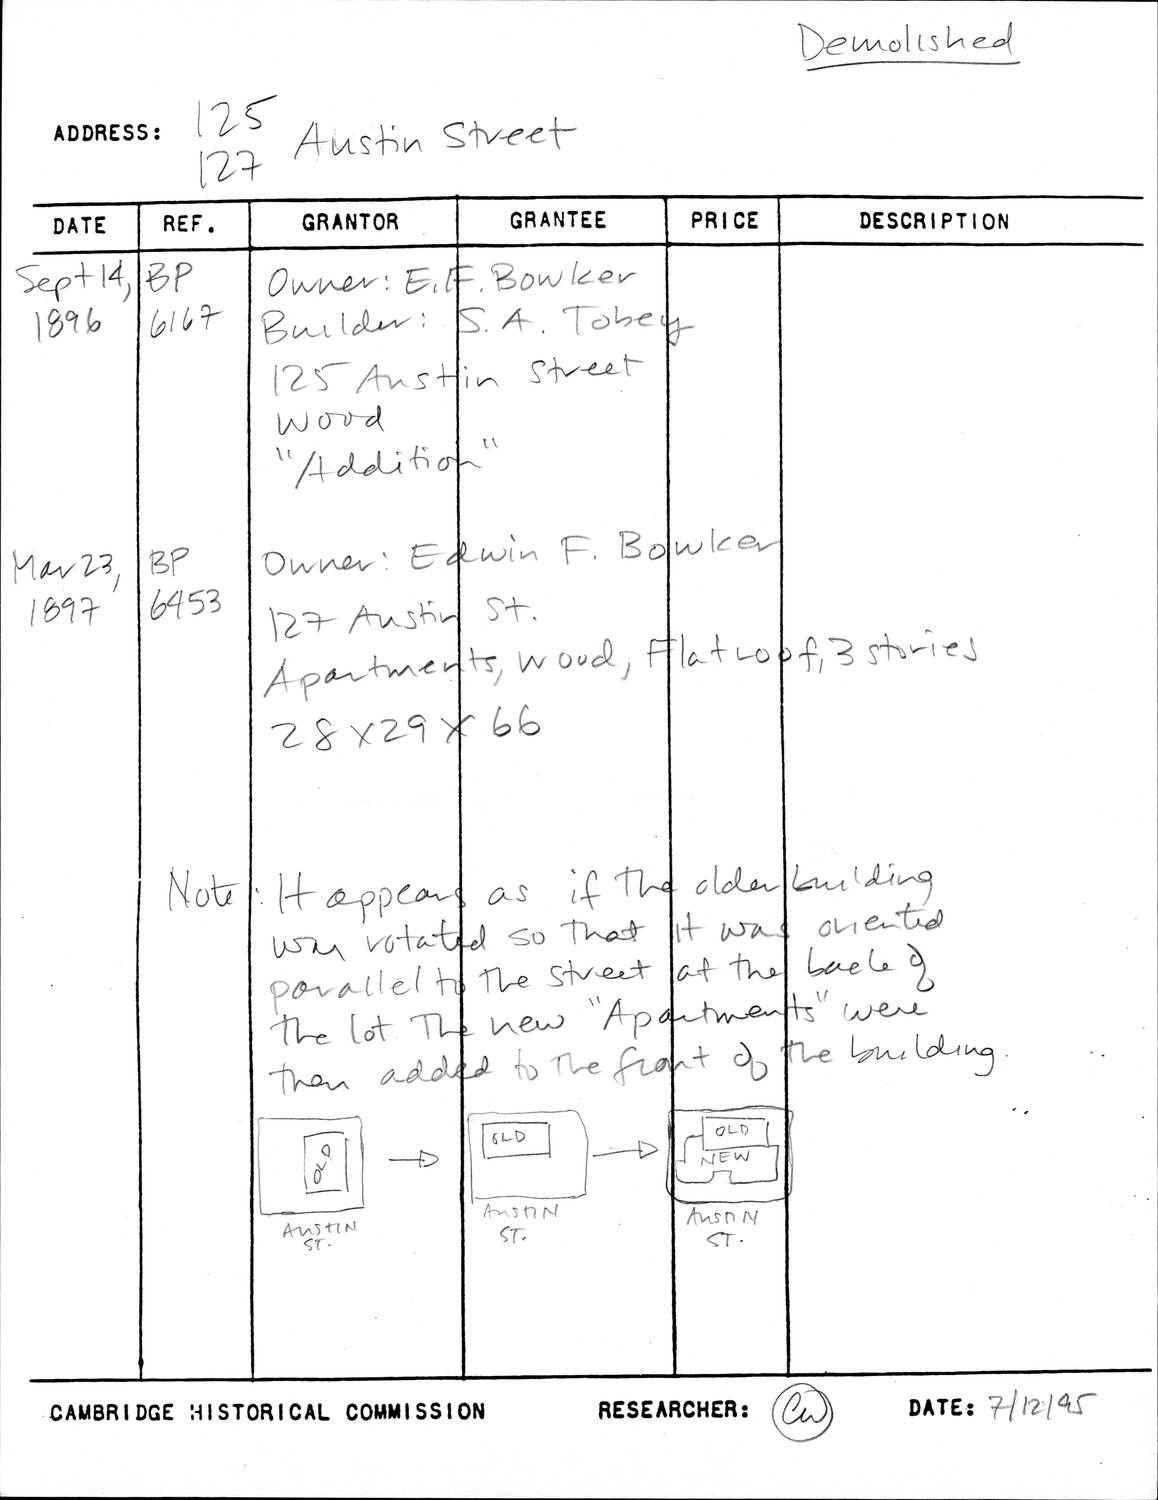 Demolished
ADDRESS: 125
127 Austin Street
DATE REF. GRANTOR GRANTEE PRICE DESCRIPTION
Sept 14, BP Owner: E.F. Bowker
1896 6167 Builder: S. A. Tobey
125 Austin Street
Wood
"Addition"
Mar 23, BP Owner: Edwin F. Bowker
1897 6453 127 Austin St.
Apartments, wood, Flat roof, 3 stories
28 x 29 x 66
Note: It appears as if the older building
was rotated so that it was oriented
parallel to the street at the back of
the lot. The new "Apartments" were
then added to the front of the building.
OLD OLD OLD
NEW
AUSTIN AUSTIN AUSTIN
ST. ST. ST.
CAMBRIDGE HISTORICAL COMMISSION RESEARCHER: CW DATE: 7/12/95